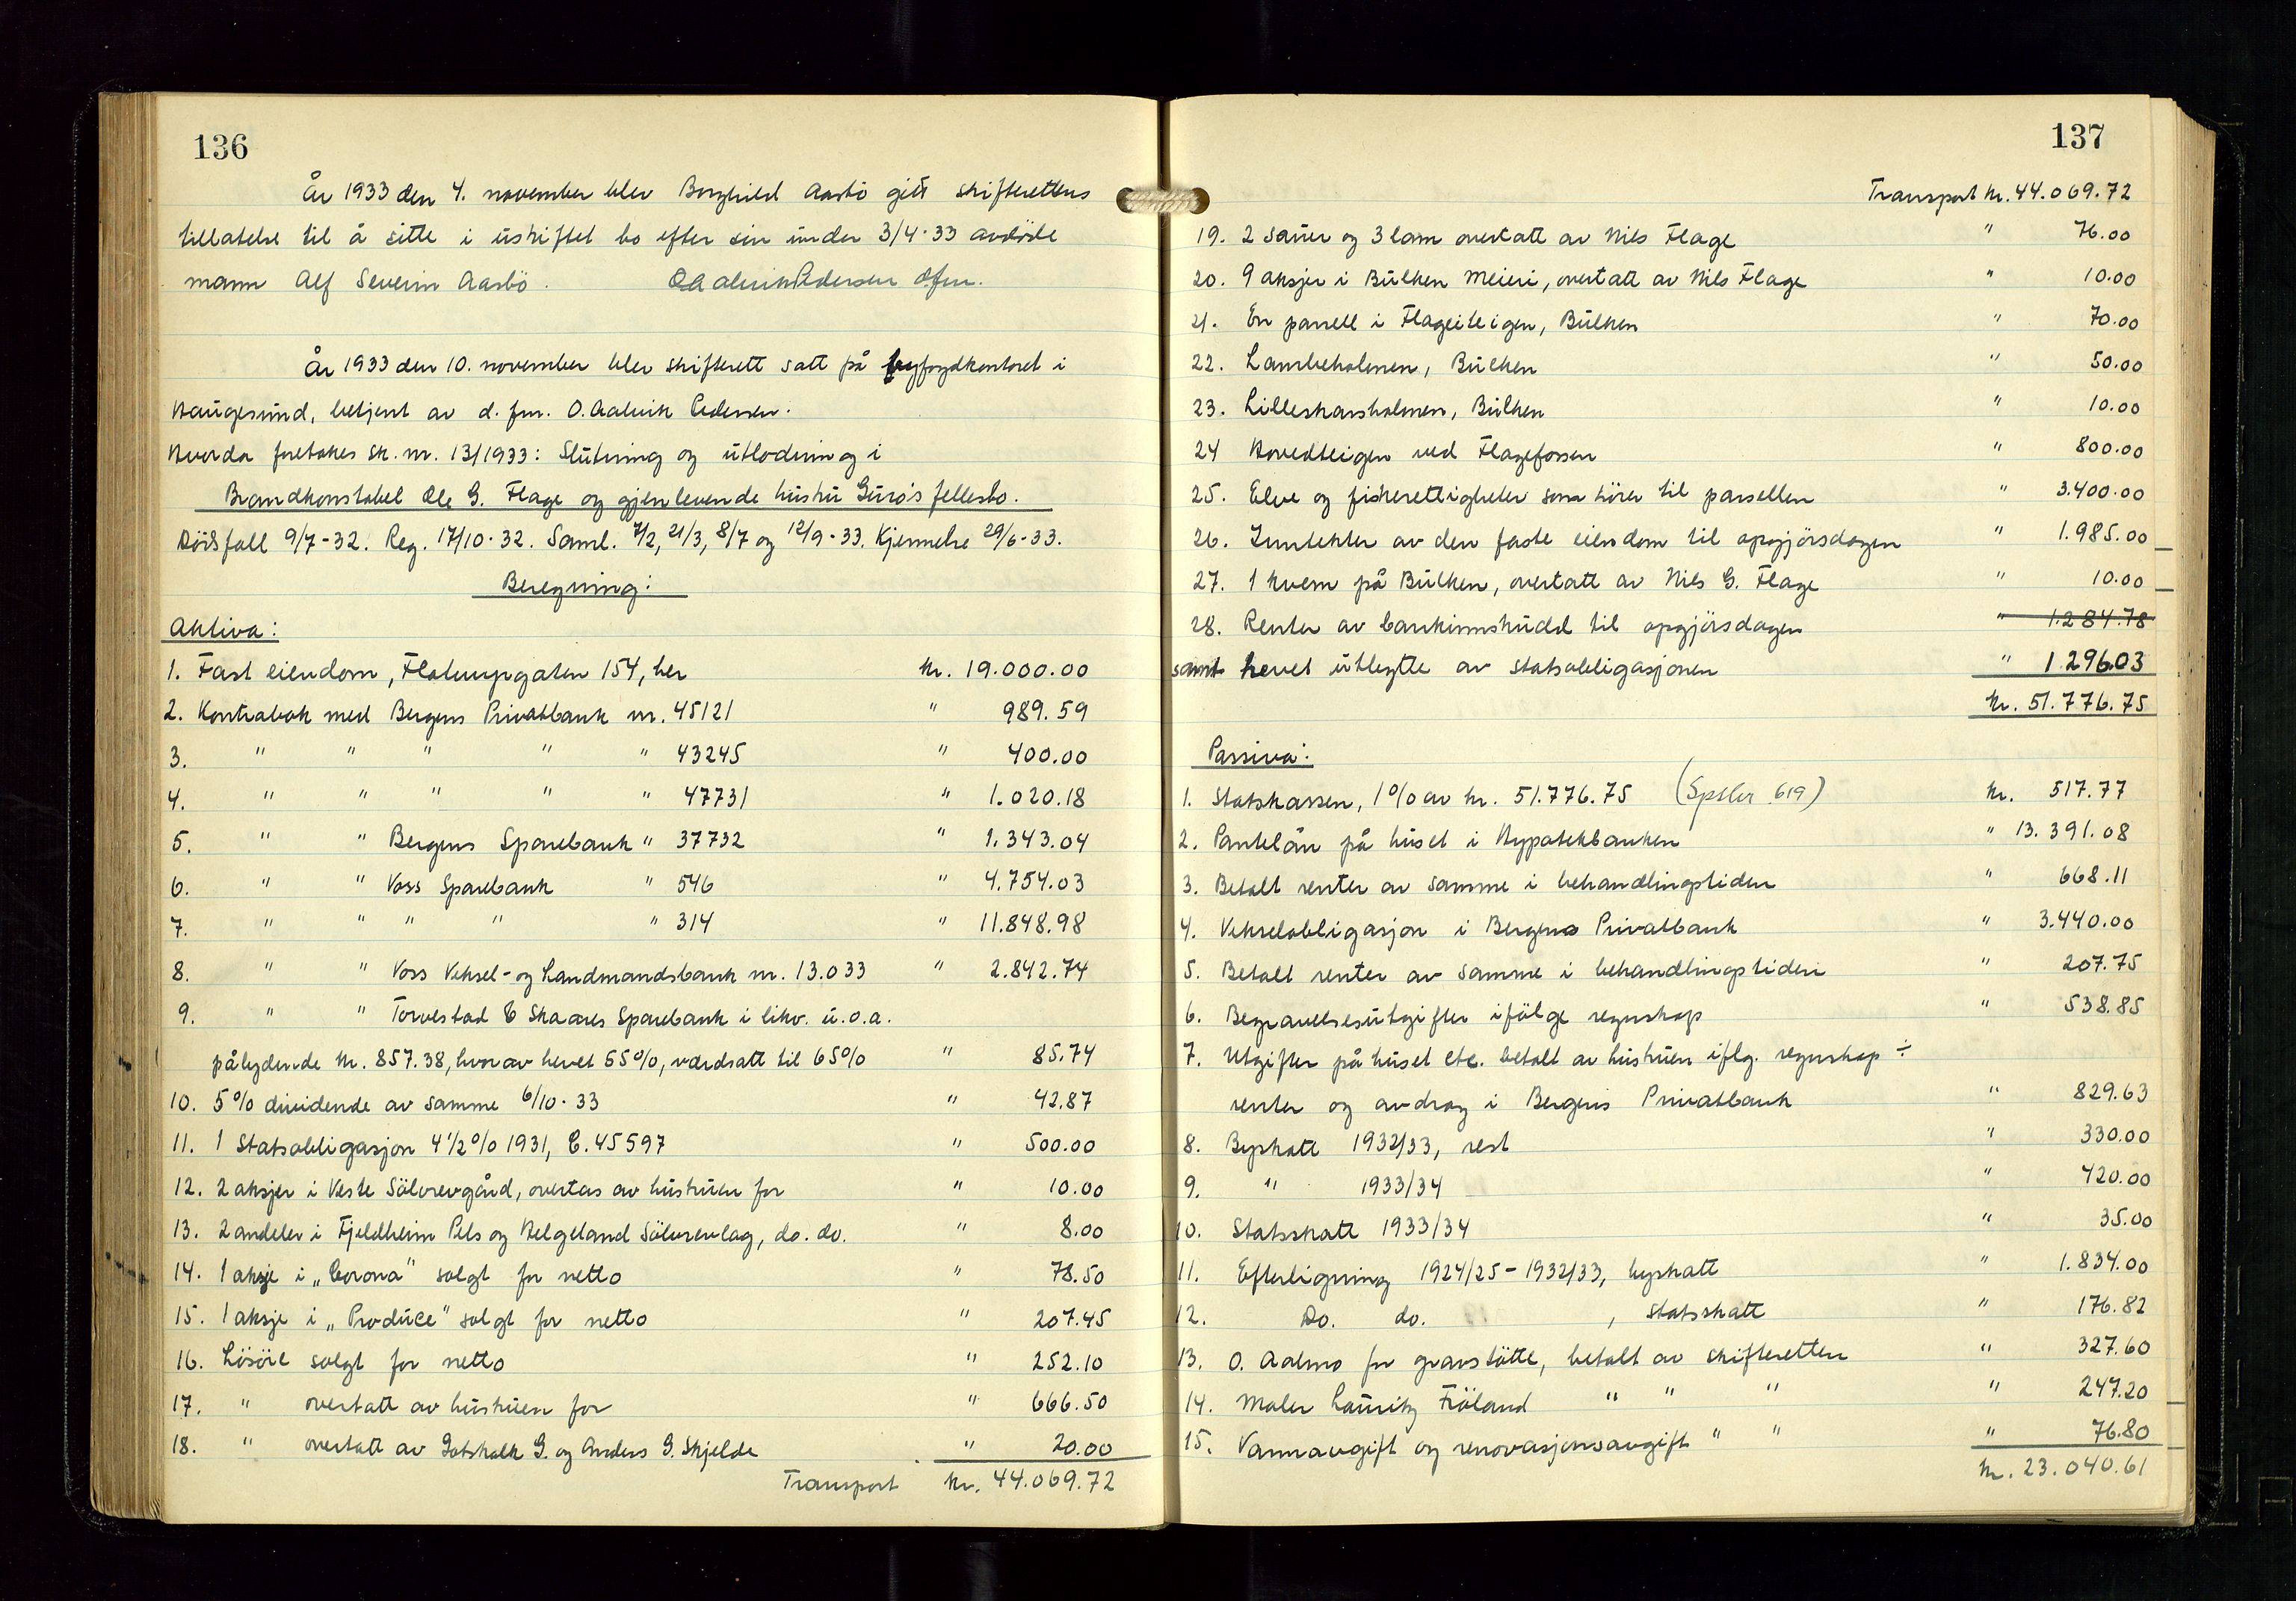 136
År 1933 den 4. november blev Borghild Aasbö gitt skifterettens
tillatelse til å sitte i uskiftet bo efter sin under 3/4-33 avdöde
mann Alf Severin Aasbö. O. Aalvik Pedersen d.fm.
År 1933 den 10. november blev skifterett satt på byfogdkontoret i
Haugesund, betjent av d. fm. O. Aalvik Pedersen.
Hvorda foretokes sk. nr. 13/1933: Slutning og utlodning i
Brandkonstabel Ole G. Flage og gjenlevende hustru Guro's fellesbo.
Dödsfall 9/7-32. Reg. 17/10-32. Saml. 7/2, 21/3, 8/7 og 12/9-33. Kjennelse 29/6-33.
Beregning:
Aktiva:
1. Fast eiendom, Flotmyrgaten 154, her kr. 19.000.00
2. Kontrabok med Bergens Privatbank nr. 45121 " 989.59
3. " " " " " 43245 " 400.00
4. " " " " " 47731 " 1.020.18
5. " " Bergens Sparebank " 37732 " 1.343.04
6. " " Voss Sparebank " 546 " 4.754.03
7. " " " " " 314 " 11.848.98
8. " " Voss Veksel- og Landmandsbank nr. 13.033 " 2.842.74
9. " " Torvestad & Skaares Sparebank i likv. u.o.a.
pålydende kr. 857.38, hvorav hevet 55%, verdsatt til 65% " 85.74
10. 5% dividende av samme 6/10-33 " 42.87
11. 1 Statsobligasjon 4 1/2% 1931, C. 45597 " 500.00
12. 2 aksjer i Veste Sölvrevgård, overtas av hustruen for " 10.00
13. 2 andeler i Fjeldheim Pels og Helgeland Sölvrevlag, do. do. " 8.00
14. 1 aksje i „Corona" solgt for netto " 78.50
15. 1 aksje i „Produce" solgt for netto " 207.45
16. Lösöre solgt for netto " 252.10
17. " overtatt av hustruen for " 666.50
18. " overtatt av Gotskalk G. og Anders G. Skjelde " 20.00
Transport kr. 44.069.72
137
Transport kr. 44.069.72
19. 2 sauer og 3 lam overtatt av Nils Flage " 76.00
20. 9 aksjer i Bulken Meieri, overtatt av Nils Flage " 10.00
21. En parsell i Flageteigen, Bulken " 70.00
22. Lambeholmen, Bulken " 50.00
23. Lilleskarsholmen, Bulken " 10.00
24 Hovedteigen ved Flagefossen " 800.00
25. Elve og fiskerettigheter som hörer til parsellen " 3.400.00
26. Inntekter av den faste eiendom til opgjörsdagen " 1.985.00
27. 1 kvern på Bulken, overtatt av Nils G. Flage " 10.00
28. Renter av bankinnskudd til opgjörsdagen " 1.284.78
samt hevet utbytte av statsobligasjonen " 1.296.03
kr. 51.776.75
Passiva:
1. Statskassen, 1% av kr. 51.776.75 (Spslbr 619) kr. 517.77
2. Pantelån på huset i Hypotekbanken " 13.391.08
3. Betalt renter av samme i behandlingstiden " 668.11
4. Vekselobligasjon i Bergens Privatbank " 3.440.00
5. Betalt renter av samme i behandlingstiden " 207.75
6. Begravelsesutgifter ifölge regnskap " 538.85
7. Utgifter på huset etc. betalt av hustruen iflg. regnskap ÷
renter og avdrag i Bergens Privatbank " 829.63
8. Byskatt 1932/33, rest " 330.00
9. " 1933/34 " 420.00
10. Statsskatt 1933/34 " 35.00
11. Efterligning 1924/25 - 1932/33, byskatt " 1.834.00
12. Do. do. , Statsskatt " 176.82
13. O. Aalmo for gravstötte, betalt av skifteretten " 327.60
14. Maler Lauritz Fröland " " " " 247.20
15. Vannavgift og renovasjonsavgift " " " 76.80
kr. 23.040.61